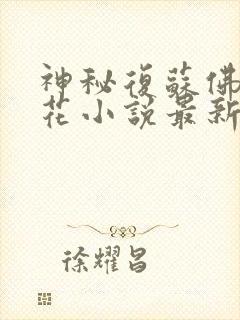 神秘復蘇佛
花小說最新
徐耀昌